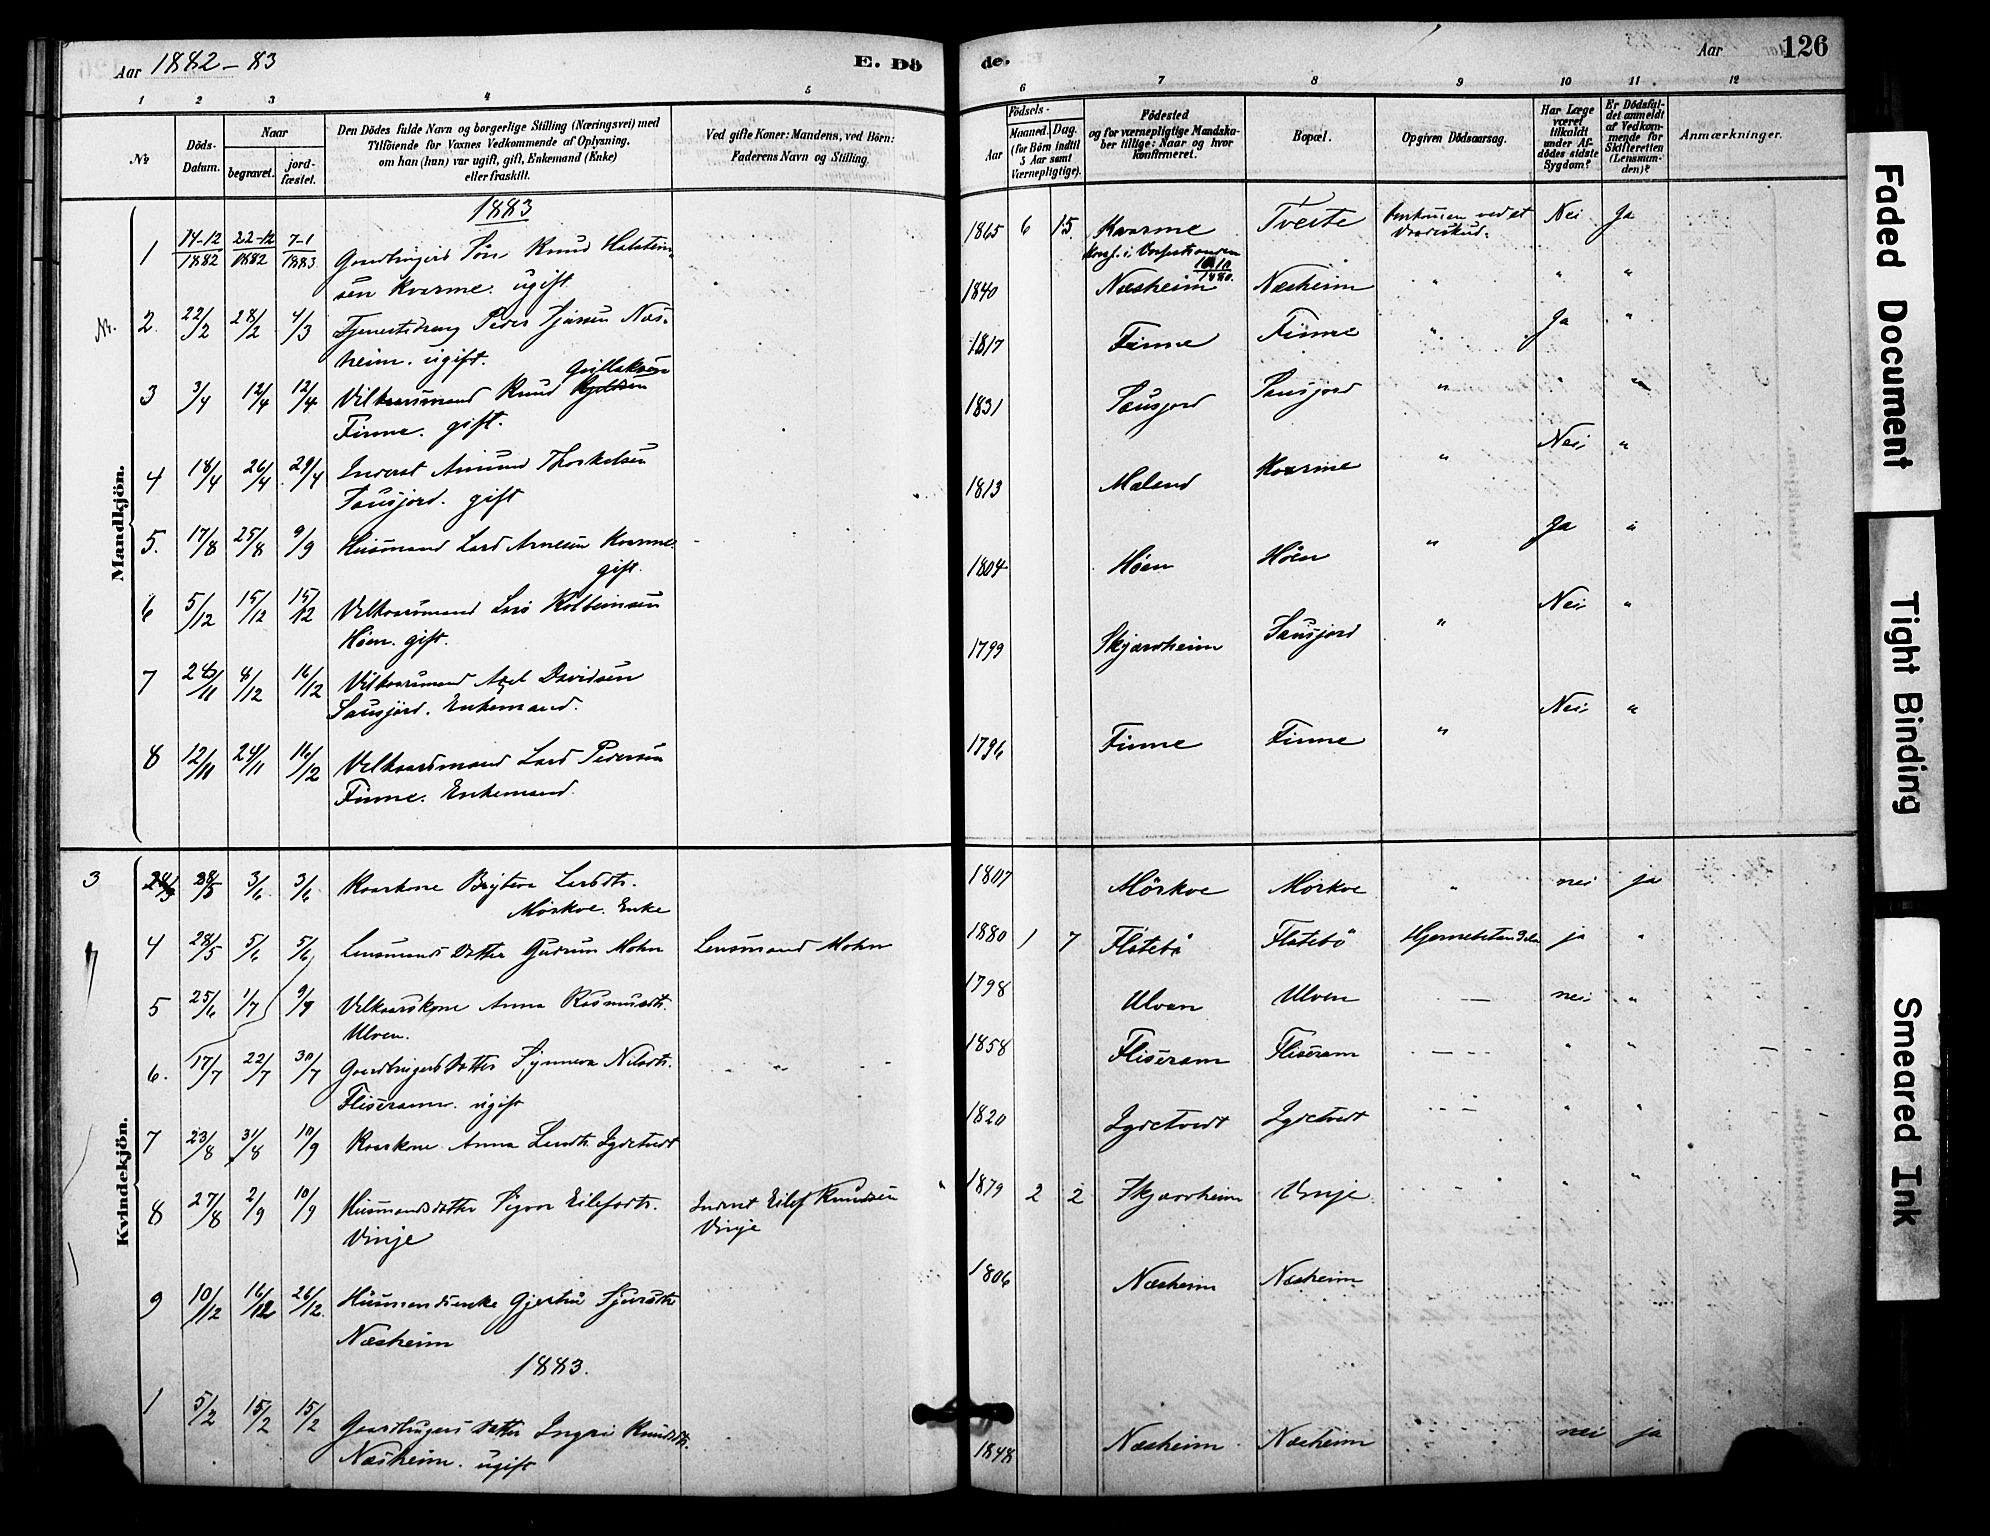 Aar 1882-83
E. Dö
de.
Aar 126
1 2 3 4 5 6 7 8 9 10 11 12
No
Döds-Datum.
Naar
begravet.
jord-fæstet.
Den Dödes fulde Navn og borgerlige Stilling (Næringsvei) med
Tilföiende for Voxnes Vedkommende af Oplysning,
om han (hun) var ugift, gift, Enkemand (Enke)
eller fraskilt.
Ved gifte Koner: Mandens, ved Börn:
Faderens Navn og Stilling.
Födsels-
Aar
Maaned. Dag.
(for Börn indtil
5 Aar samt
Værnepligtige).
Födested
og for værnepligtige Mandska-
ber tillige: Naar og hvor
konfirmeret.
Bopæl.
Opgiven Dödsaarsag.
Har Læge
været
tilkaldt
under Af-
dödes sidste
Sygdom?
Er Dödsfal-
det anmeldt
af Vedkom-
mende for
Skifteretten
(Lensman-
den)?
Anmærkninger.
Mandkjön.
1883
1 14-12 1882 22-12 1882 7-1 1883 Gaardbrugers Søn Knud Halstein-
sen Kvarme. ugift
1865 6 15 Kvarme Tveite Omkommen ved et Nei Ja
Nr. 2. 22/2 28/2 4/3 Tjenestedreng Peder Sjursen Næs-
heim. ugift.
1840 Næsheim Næsheim " " "
3 3/4 12/4 12/4 Vilkaarsmand Knud
Finne. gift.
1817 Finne Finne " Ja "
4 18/4 26/4 29/4 Inderst Amund Thorkelsen
Sausjord. gift
1831 Sausjord Sausjord " " "
5. 17/8 25/8 9/9 Husmand Lars Arnesen Kvarme.
gift.
1813 Mæland Kvarme " Nei "
6 5/12 15/12 15/12 Vilkaarsmand Lars Kolbeinsen
Høen. gift.
1804 Höen Höen " Ja "
7 28/11 8/12 16/12 Vilkaarsmand Axel Davidsen
Sausjord. Enkemand.
1799 Skjærvheim Sausjord " Nei "
8 12/11 24/11 16/12 Vilkaarsmand Lars Pedersen
Finne. Enkemand.
1796 Finne Finne " Nei "
Kvindekjön.
3 28/5 3/6 3/6 Kaarkone Bryteva Larsdtr.
Mørkve. Enke
1807 Mörkve Mörkve " nei ja
4 28/5 5/6 5/6 Lensmands Datter Gudrun Mohn Lensmand Mohn
1880 1 7 Flatebö Flatebö ja "
5 25/6 1/7 9/9 Vilkaarskone Anna Rasmusdtr.
Ulven.
1798 Ulven Ulven — nei "
6. 17/7 22/7 30/7 Gaardbrugers Datter Synneva Nilsdtr.
Fliseram. ugift
1858 Fliseram Fliseram — " "
7 23/8 31/8 10/9 Kaarkone Anna Larsdtr. Gjeltvedt
1820 — " "
8 27/8 2/9 10/9 Husmandsdatter Sigvor Eilefsdtr.
Vinje
Inderst Eilef Knudsen
Vinje
1879 2 2 Skjærvheim Vinje — " "
9 10/12 16/12 26/12. Husmandsenke Gjertru Sjursdtr
Næsheim
1806 Næsheim Næsheim
1883.
1 5/2 15/2 15/2 Gaardbrugers Datter Ingri Knudsdtr.
Næsheim. ugift
1848 Næsheim Næsheim nei ja
Faded Document
Tight Binding
Smeared Ink